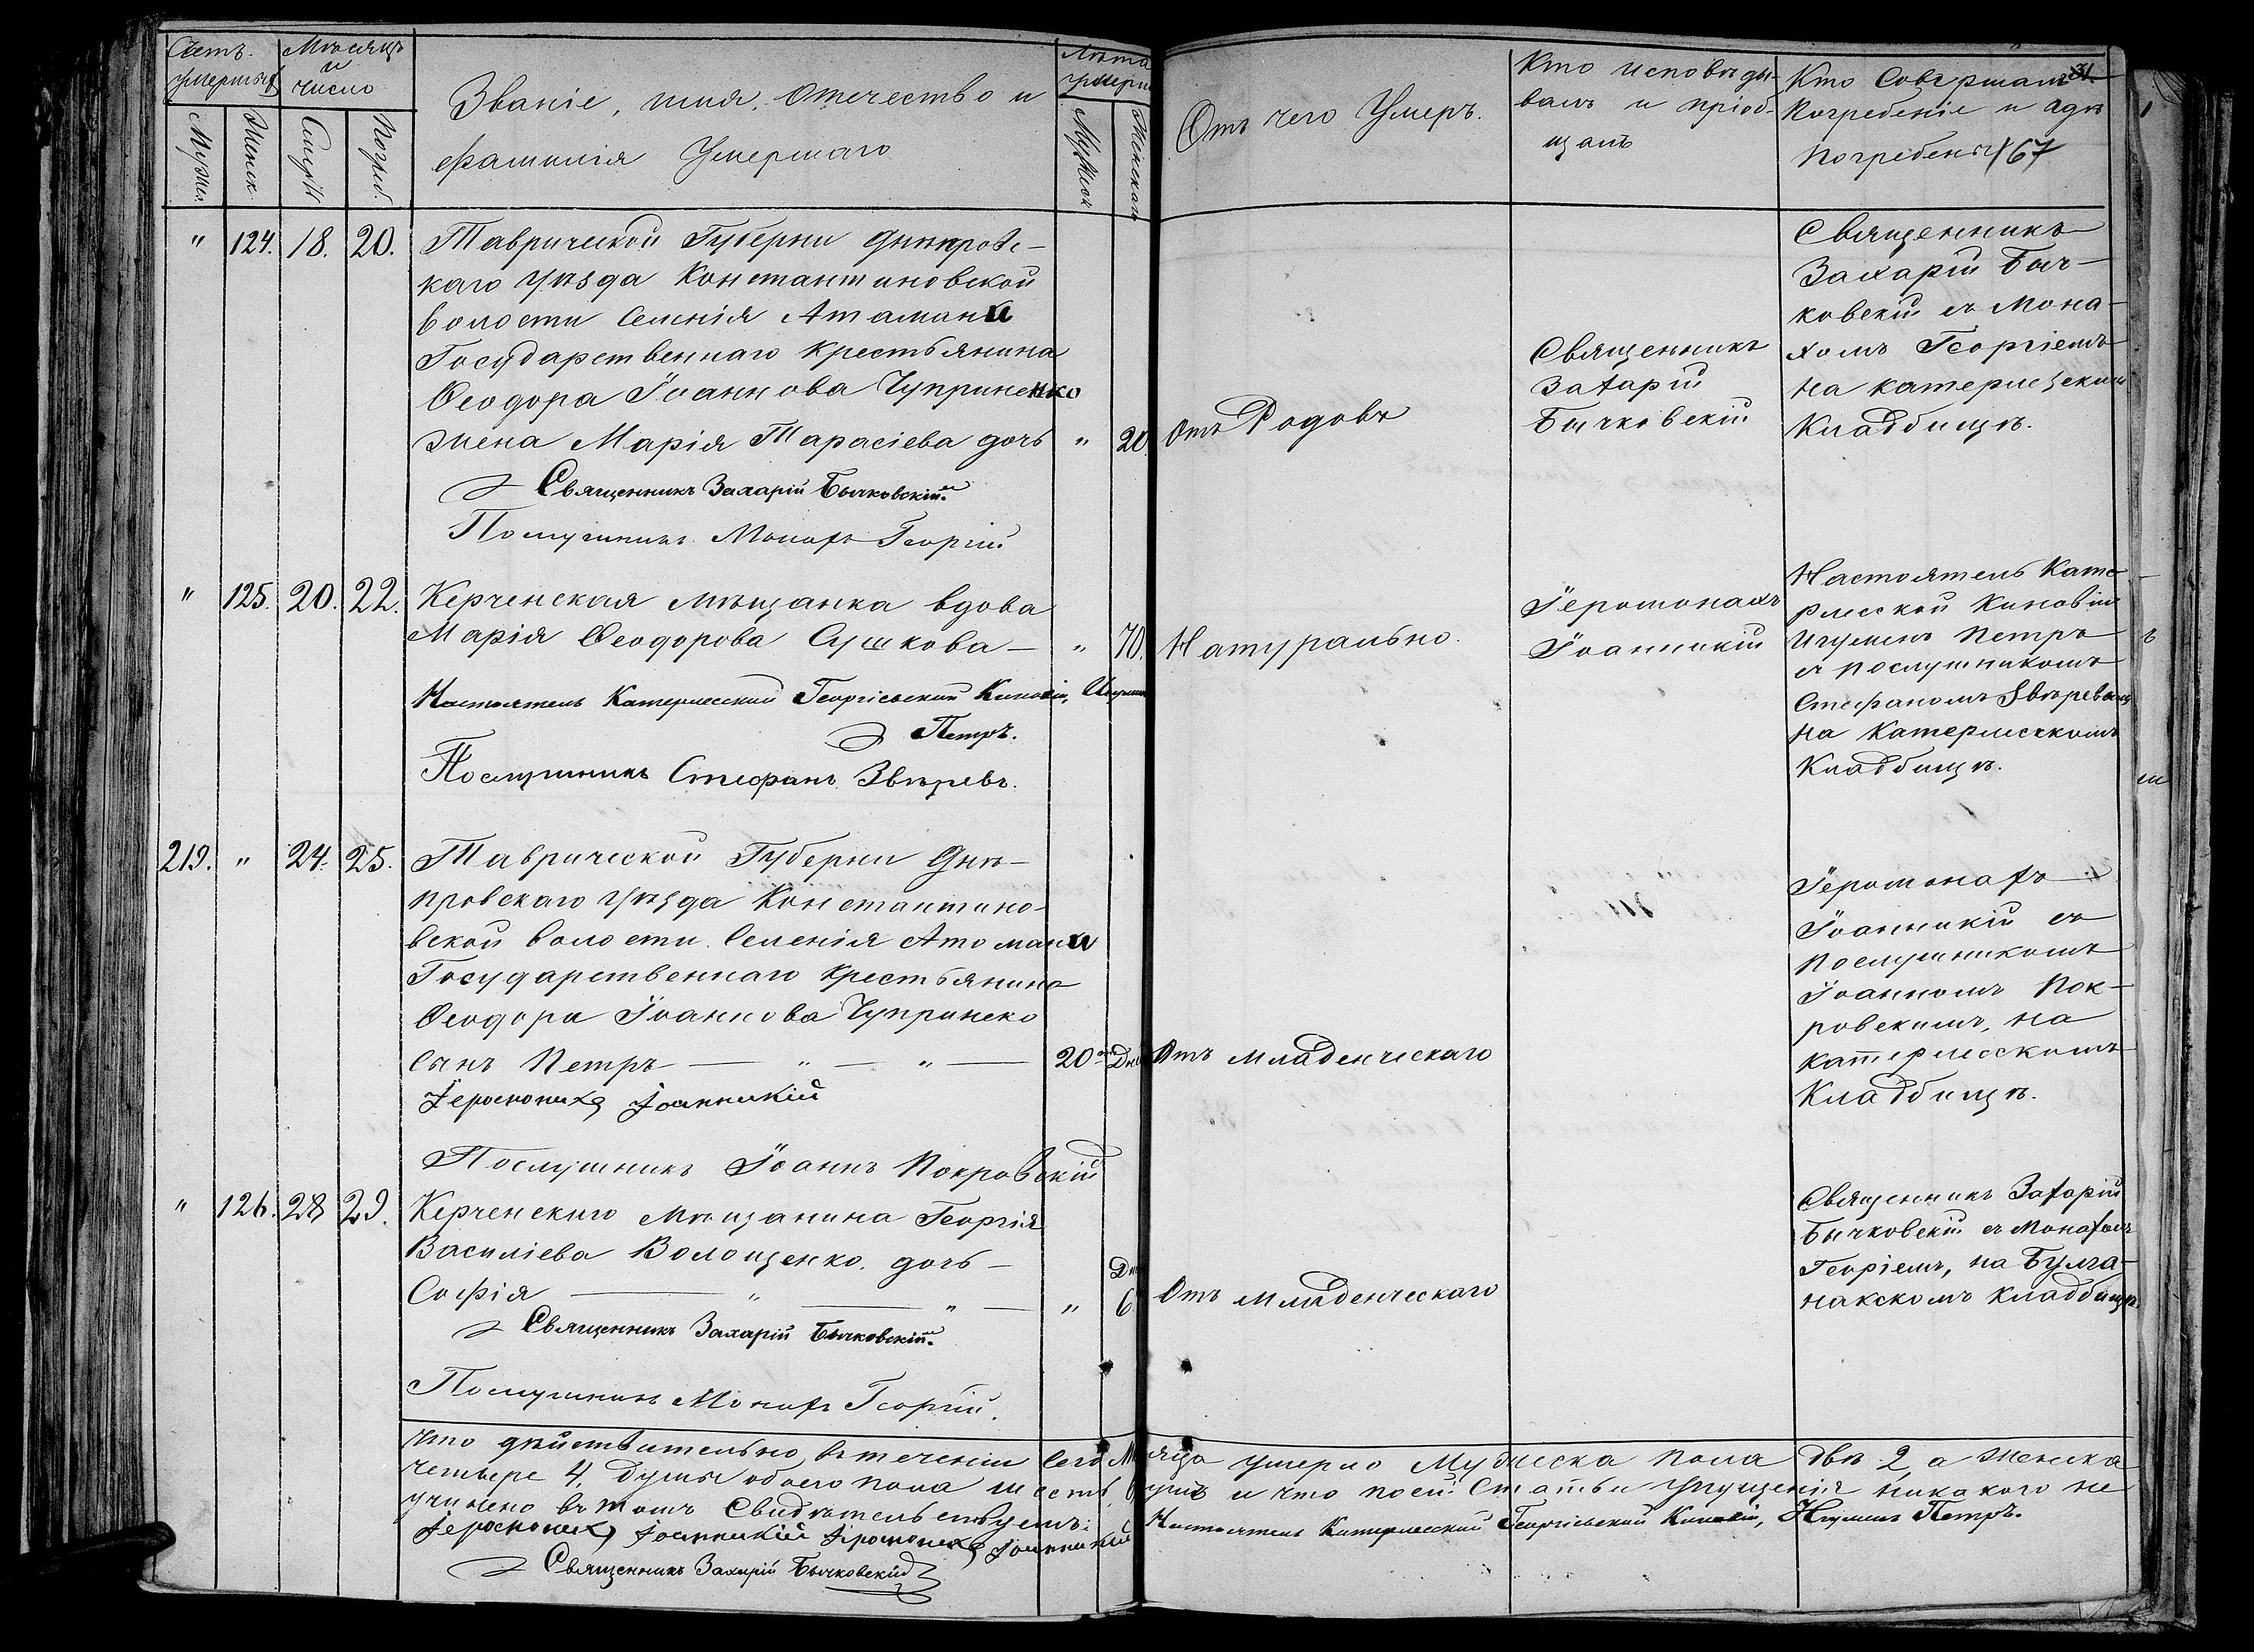 Счетъ
умершихъ
Мѣсяцъ
и
число
Мужеск
Женск
Смерти
Погреб.
Званіе, имя, отечество и
фамилія Умершаго
Лѣта
умерш
Мужеск
Женскаго
Отъ чего Умеръ.
Кто исповѣды-
валъ и пріоб-
щалъ
Кто Совершалъ
погребеніе и гдѣ
погребены
31.
167
" 124. 18. 20. Таврической Губерни Днѣпровс-
каго уѣзда Константиновской
волости Селенія Атаманки
Государственнаго крестьянина
Ѳеодора Іоаннова Чуприненко
жена Марія Тарасіева дочь " 20.
Священникъ Захарій Бычковскій.
Послушникъ Монахъ Георгій
Отъ Родовъ
Священникъ
Захарій
Бычковскій
Священникъ
Захарій Быч-
ковскій съ Мона-
хомъ Георгіемъ
на катерлескомъ
Кладбищѣ.
" 125. 20. 22. Керченская мѣщанка вдова
Марія Ѳеодорова Сушкова — " 70.
Настоятель Катерлесской Георгіевской Киновіи, Игуменъ
Петръ.
Послушникъ Стефанъ Звѣревъ.
Натурально.
Іеромонахъ
Іоанникій
Настоятель Кате-
рлесской Киновіи
Игуменъ Петръ
съ послушникомъ
Стефаномъ Звѣревымъ
на Катерлескомъ
Кладбищѣ.
219. " 24. 25. Таврической Губерни Днѣ-
провскаго уѣзда Константино-
вской волости Селенія Атоманки
Государственнаго крестьянина
Ѳеодора Іоаннова Чупринско
сынъ Петръ — " — " — 20 Дне
Іеромонахъ Іоанникій
Послушникъ Іоаннъ Покровскій
Отъ младенческаго
Іеромонахъ
Іоанникій съ
послушникомъ
Іоанномъ Пок-
ровскимъ, на
катерлесскомъ
Кладбищѣ.
" 126. 28 29. Керченскаго мѣщанина Георгія
Василіева Волощенко дочь —
Софія — " — " — " Дн 6
Священникъ Захарій Бычковскій.
Послушникъ Монахъ Георгій.
Отъ младенческаго
Священникъ Захарій
Бычковскій съ Монахомъ
Георіемъ, на Булга-
накскомъ кладбищѣ.
Что дѣйствительно въ теченіи сего Мѣсяца умерло Мужеска пола двѣ 2, а женска
четыре 4, душъ обоего пола шесть 6 душъ и что посей Статьи упущенія никакого не
учинено въ томъ Свидѣтельствуемъ:
Іеромонахъ Іоанникій Іеромонахъ Іоанникій Настоятель Катерлесской Георгіевской Киновіи, Игуменъ Петръ.
Священникъ Захарій Бычковскій